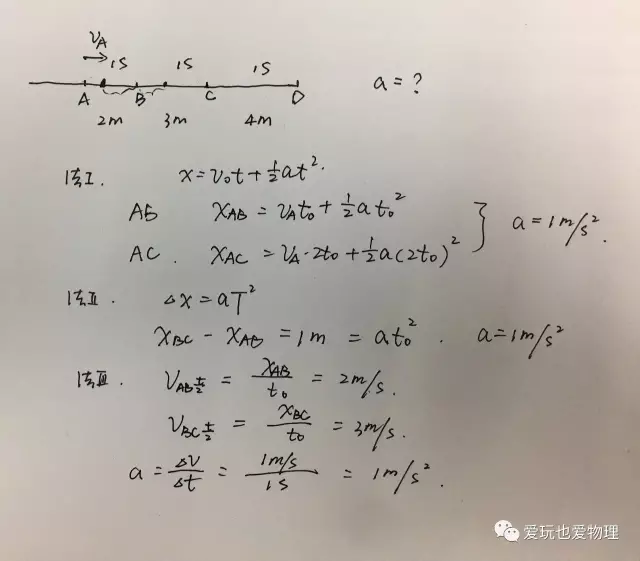 vA
1S 1S 1S
A B C D
a = ?
2m 3m 4m
法I. x = v₀t + ½at².
AB xAB = vAt₀ + ½at₀²
AC. xAC = vA·2t₀ + ½a(2t₀)²
a = 1m/s².
法II. △x = aT²
xBC - xAB = 1m = at₀². a = 1m/s²
法III. vAB t/2 = xAB/t₀ = 2m/s.
vBC t/2 = xBC/t₀ = 3m/s.
a = △v/△t = 1m/s/1s = 1m/s².
爱玩也爱物理